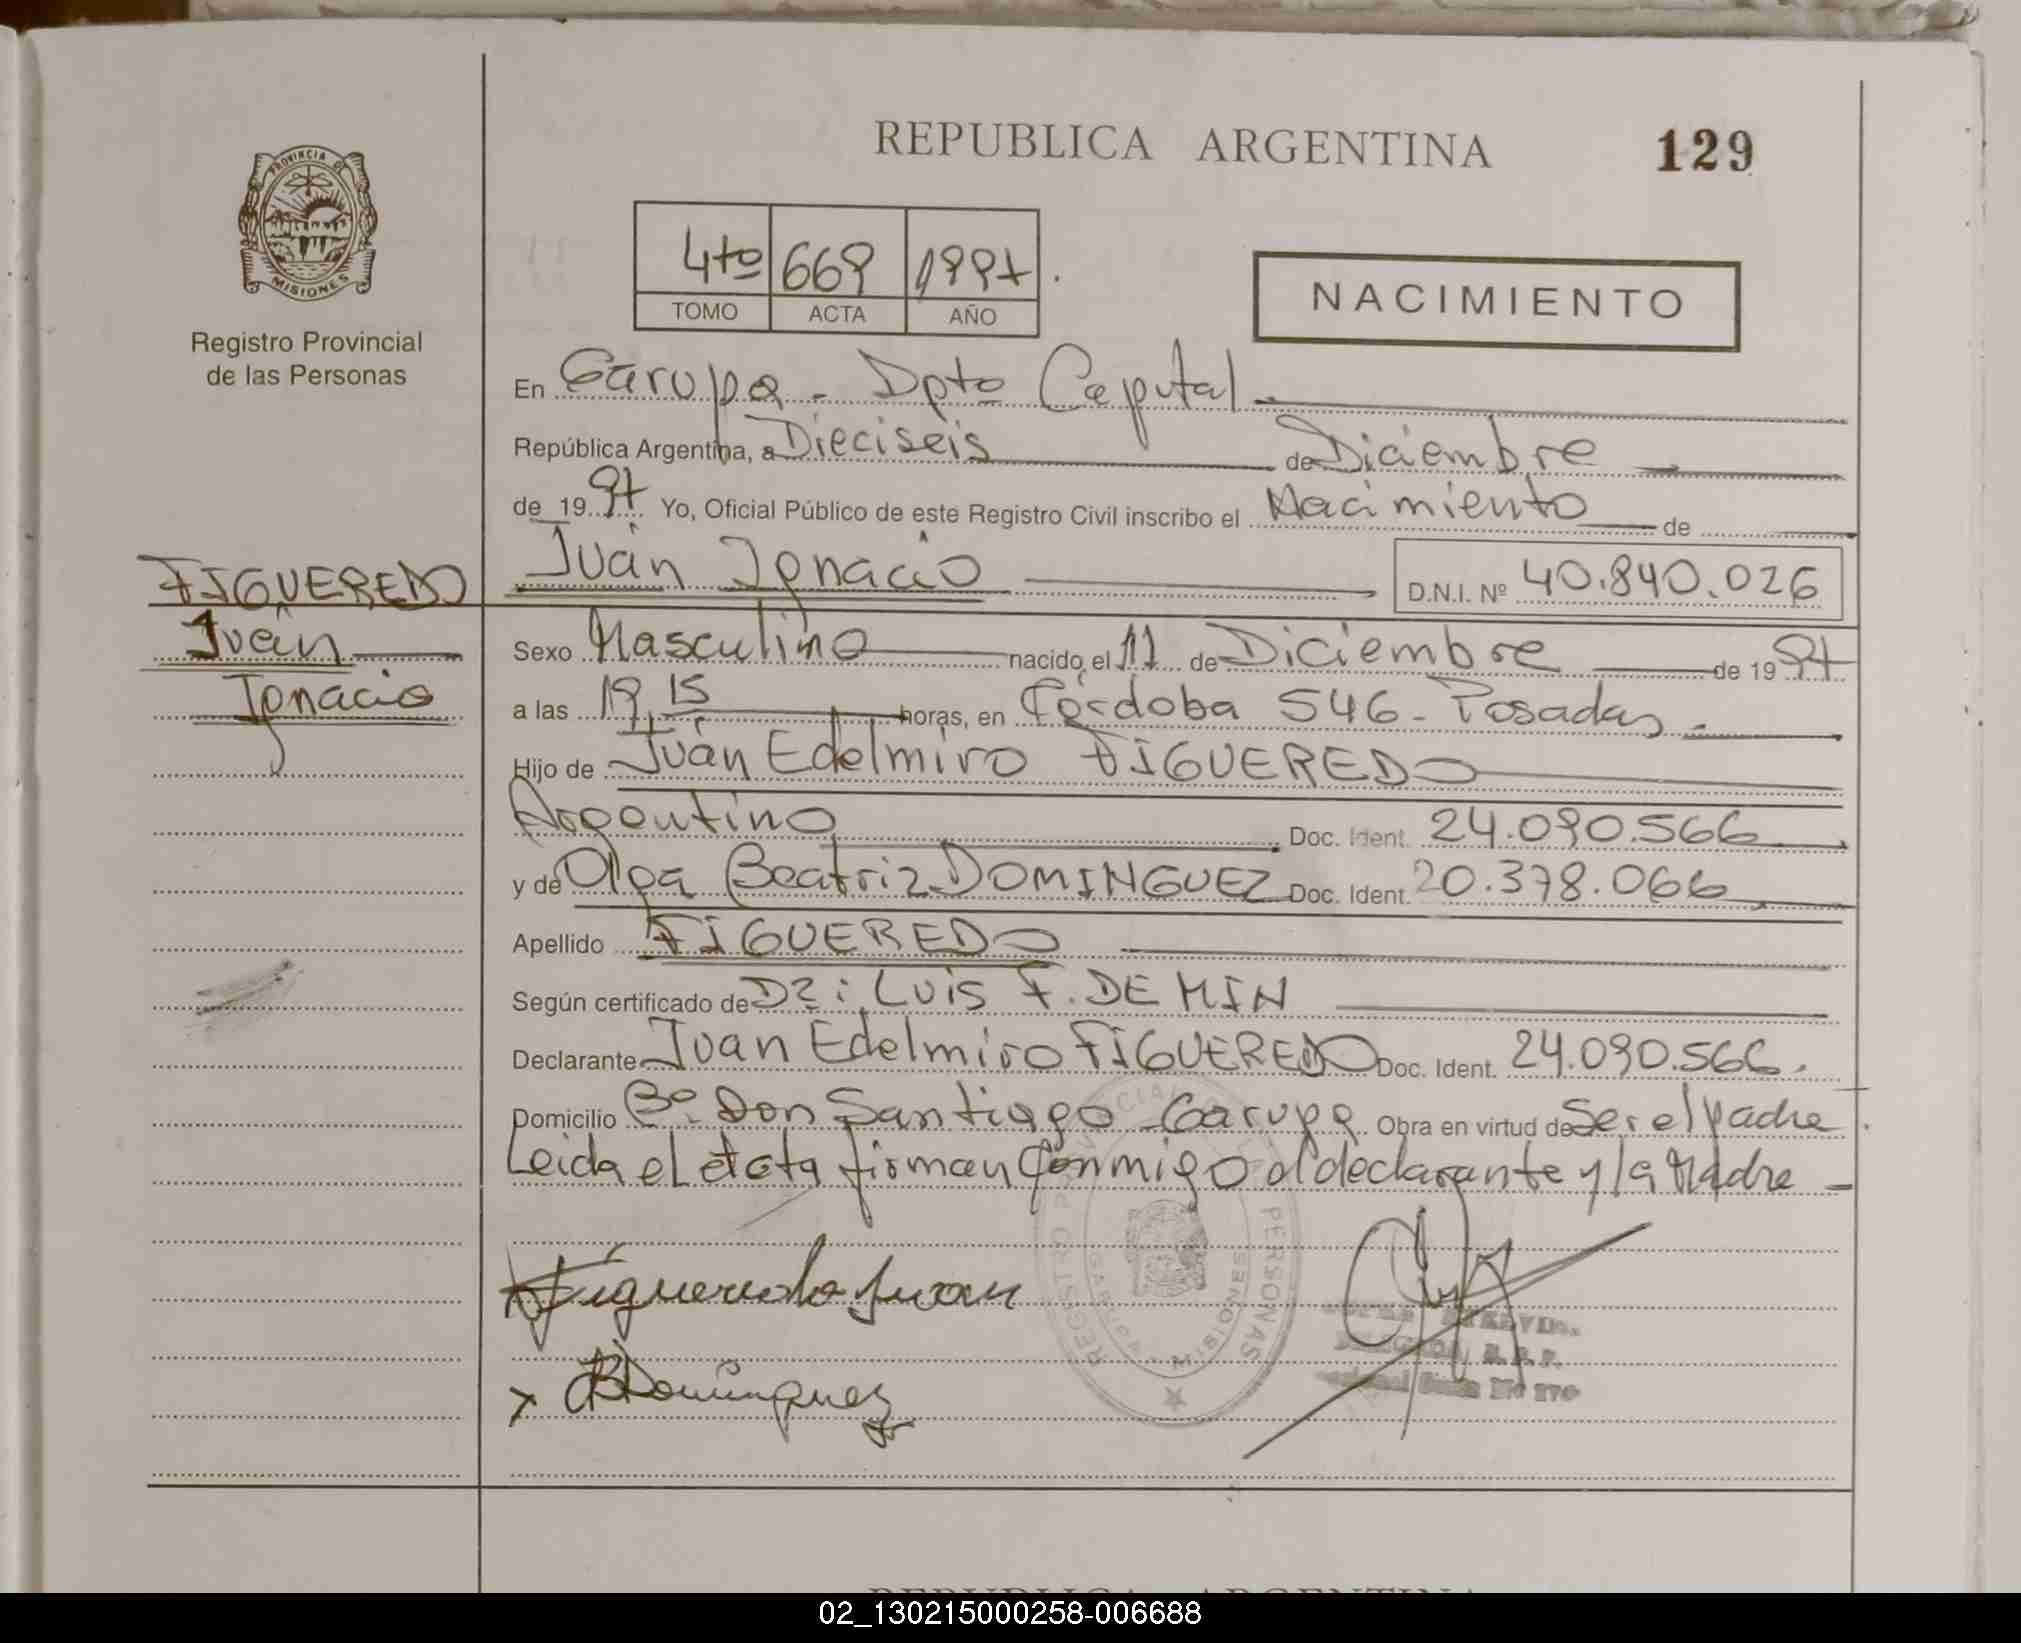 REPUBLICA ARGENTINA
129
PROVINCIA DE
MISIONES
Registro Provincial
de las Personas
4to 669 1997
TOMO ACTA AÑO
NACIMIENTO
En Garupa - Dpto Capital
República Argentina, a Dieciseis de Diciembre
de 1997 Yo, Oficial Público de este Registro Civil inscribo el Nacimiento de
FIGUEREDO
Juan
Ignacio
Juan Ignacio D.N.I. Nº 40.840.026
Sexo Masculino nacido el 11 de Diciembre de 1997
a las 19,15 horas, en Córdoba 546 - Posadas -
Hijo de Juan Edelmiro FIGUEREDO
Argentino Doc. Ident. 24.090.566
y de Olga Beatriz DOMINGUEZ Doc. Ident. 20.378.066
Apellido FIGUEREDO
Según certificado de Dr: Luis F. DEMIN
Declarante Juan Edelmiro FIGUEREDO Doc. Ident. 24.090.566.
Domicilio Bº Don Santiago - Garupa Obra en virtud de Ser el padre
Leida el acta firman conmigo el declarante y la Madre -
REGISTRO PROVINCIAL DE LAS PERSONAS
MISIONES
Figueredo Juan
x OBDominguez
REPUBLICA ARGENTINA
02_130215000258-006688